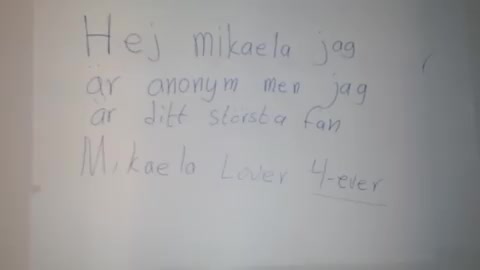 Hej mikaela jag
är anonym men jag
är ditt största fan
Mikaela Lover 4-ever